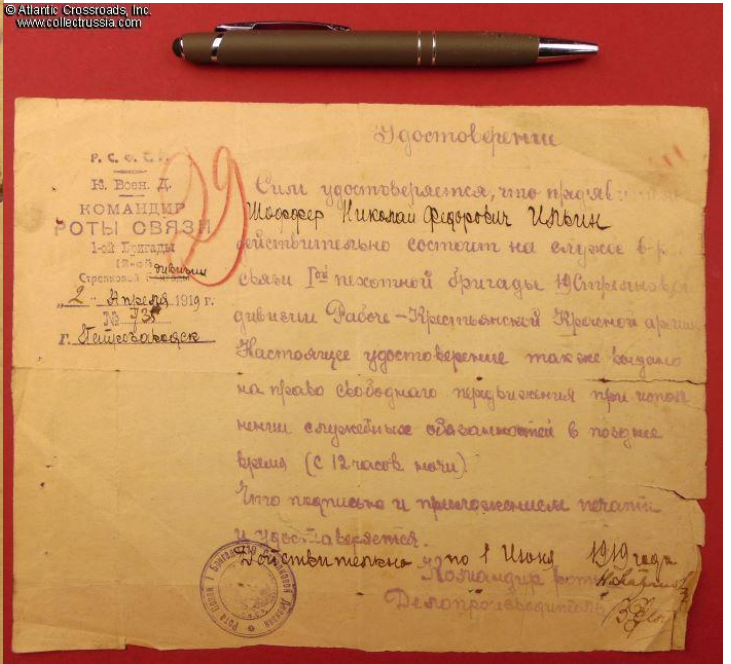 © Atlantic Crossroads, Inc.
www.collectrussia.com
Удостоверение
Р. С. Ф. С. Р.
Воен. Д.
КОМАНДИР
РОТЫ СВЯЗИ
1-ой Бригады
дивизии
Стрелковой
"2" Апреля 1919 г.
№ 73
г. Петрозаводск
29
Сим удостоверяется, что
Шоффер Николай Федорович Ильин
действительно состоит на службе в
связи 1ой пехотной бригады 19 Стрелковой
дивизии Рабоче-Крестьянской Красной армии
Настоящее удостоверение также выдано
на право свободнаго передвижения при испол
нении служебных обязанностей в позднее
время (с 12 часов ночи).
Что подписью и приложением печати
и удоставеряется.
Действительно по 1 Июня 1919 года
Командир роты
Делопроизводитель